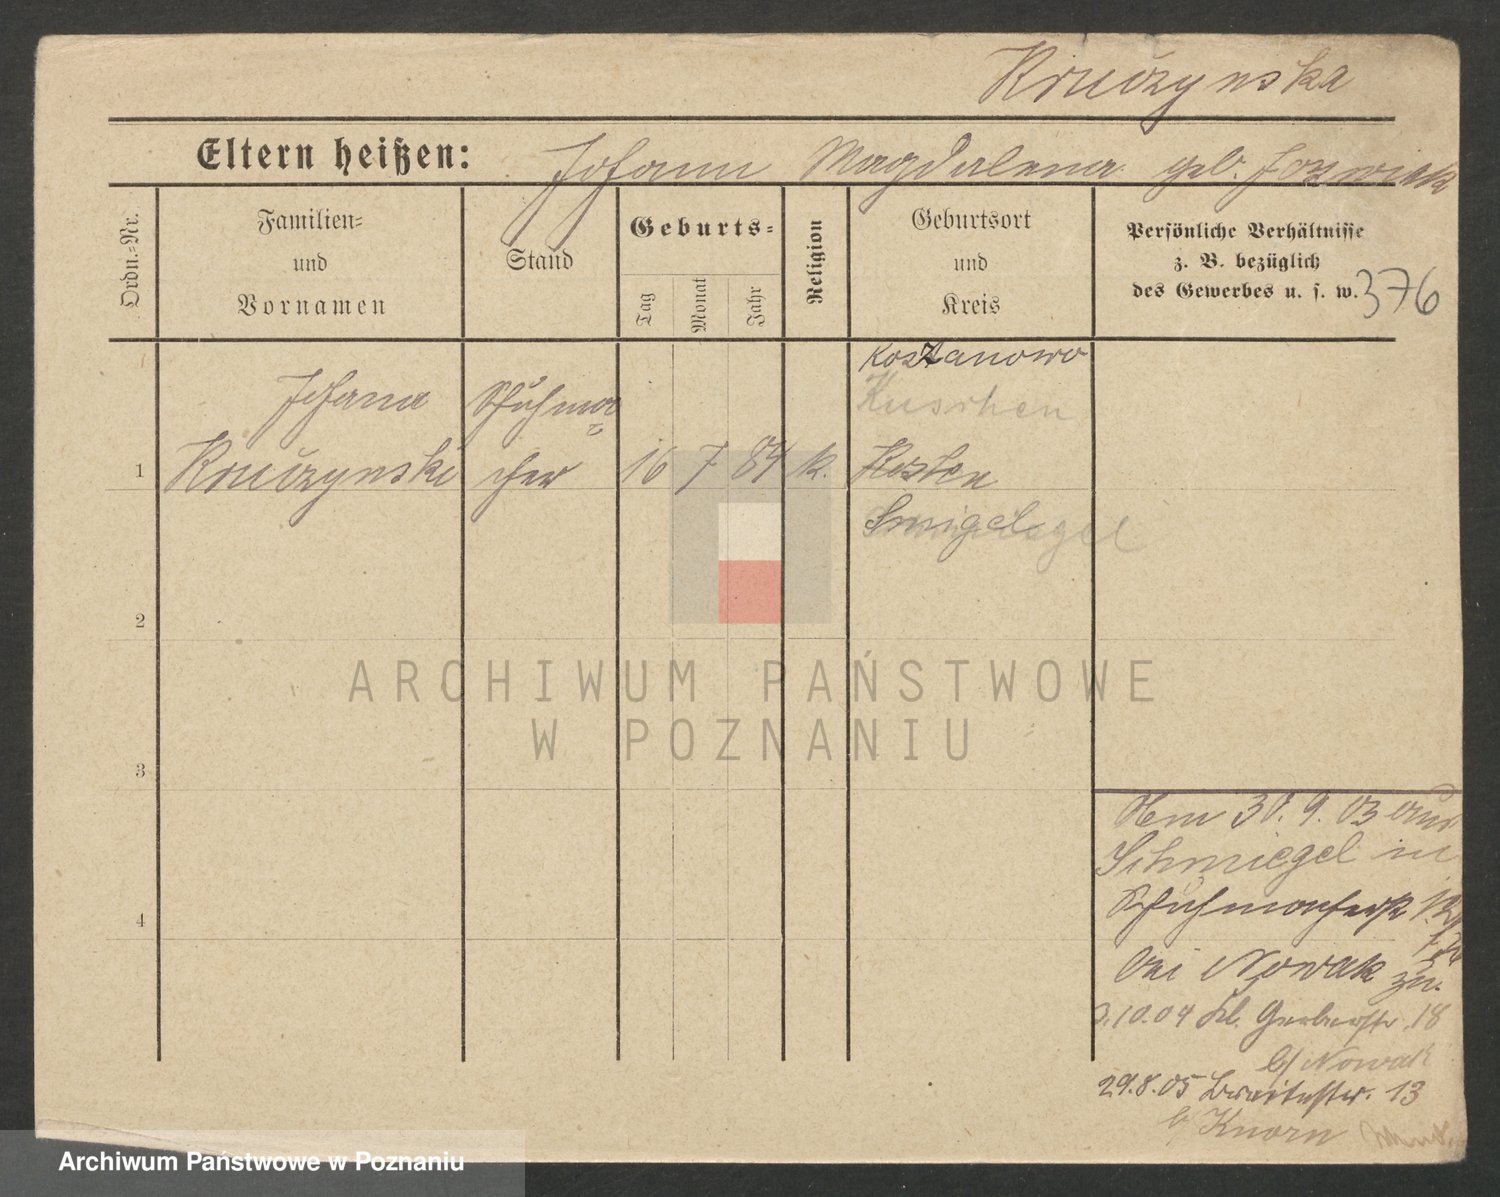 Kruczynska
Eltern heißen: Johann Magdalena geb. Jozwiak
Ordn.-Nr.
Familien-
und
Vornamen
Stand
Geburts-
Tag
Monat
Jahr
Religion
Geburtsort
und
Kreis
Persönliche Verhältnisse
z. B. bezüglich
des Gewerbes u. s. w. 376
Koszanowo
Johann Schuhma= Kuschen
1 Kruczynski cher 16 7 84 k. Kosten
Smigel
2
3
4
30. 9. 03 aus
Schmiegel in
bei Nowak zu.
3.10.04 Kl. Gerberstr. 18
b/ Nowak
29.8.05 Breitestr. 13
b/ Knorn
ARCHIWUM PAŃSTWOWE
W POZNANIU
Archiwum Państwowe w Poznaniu